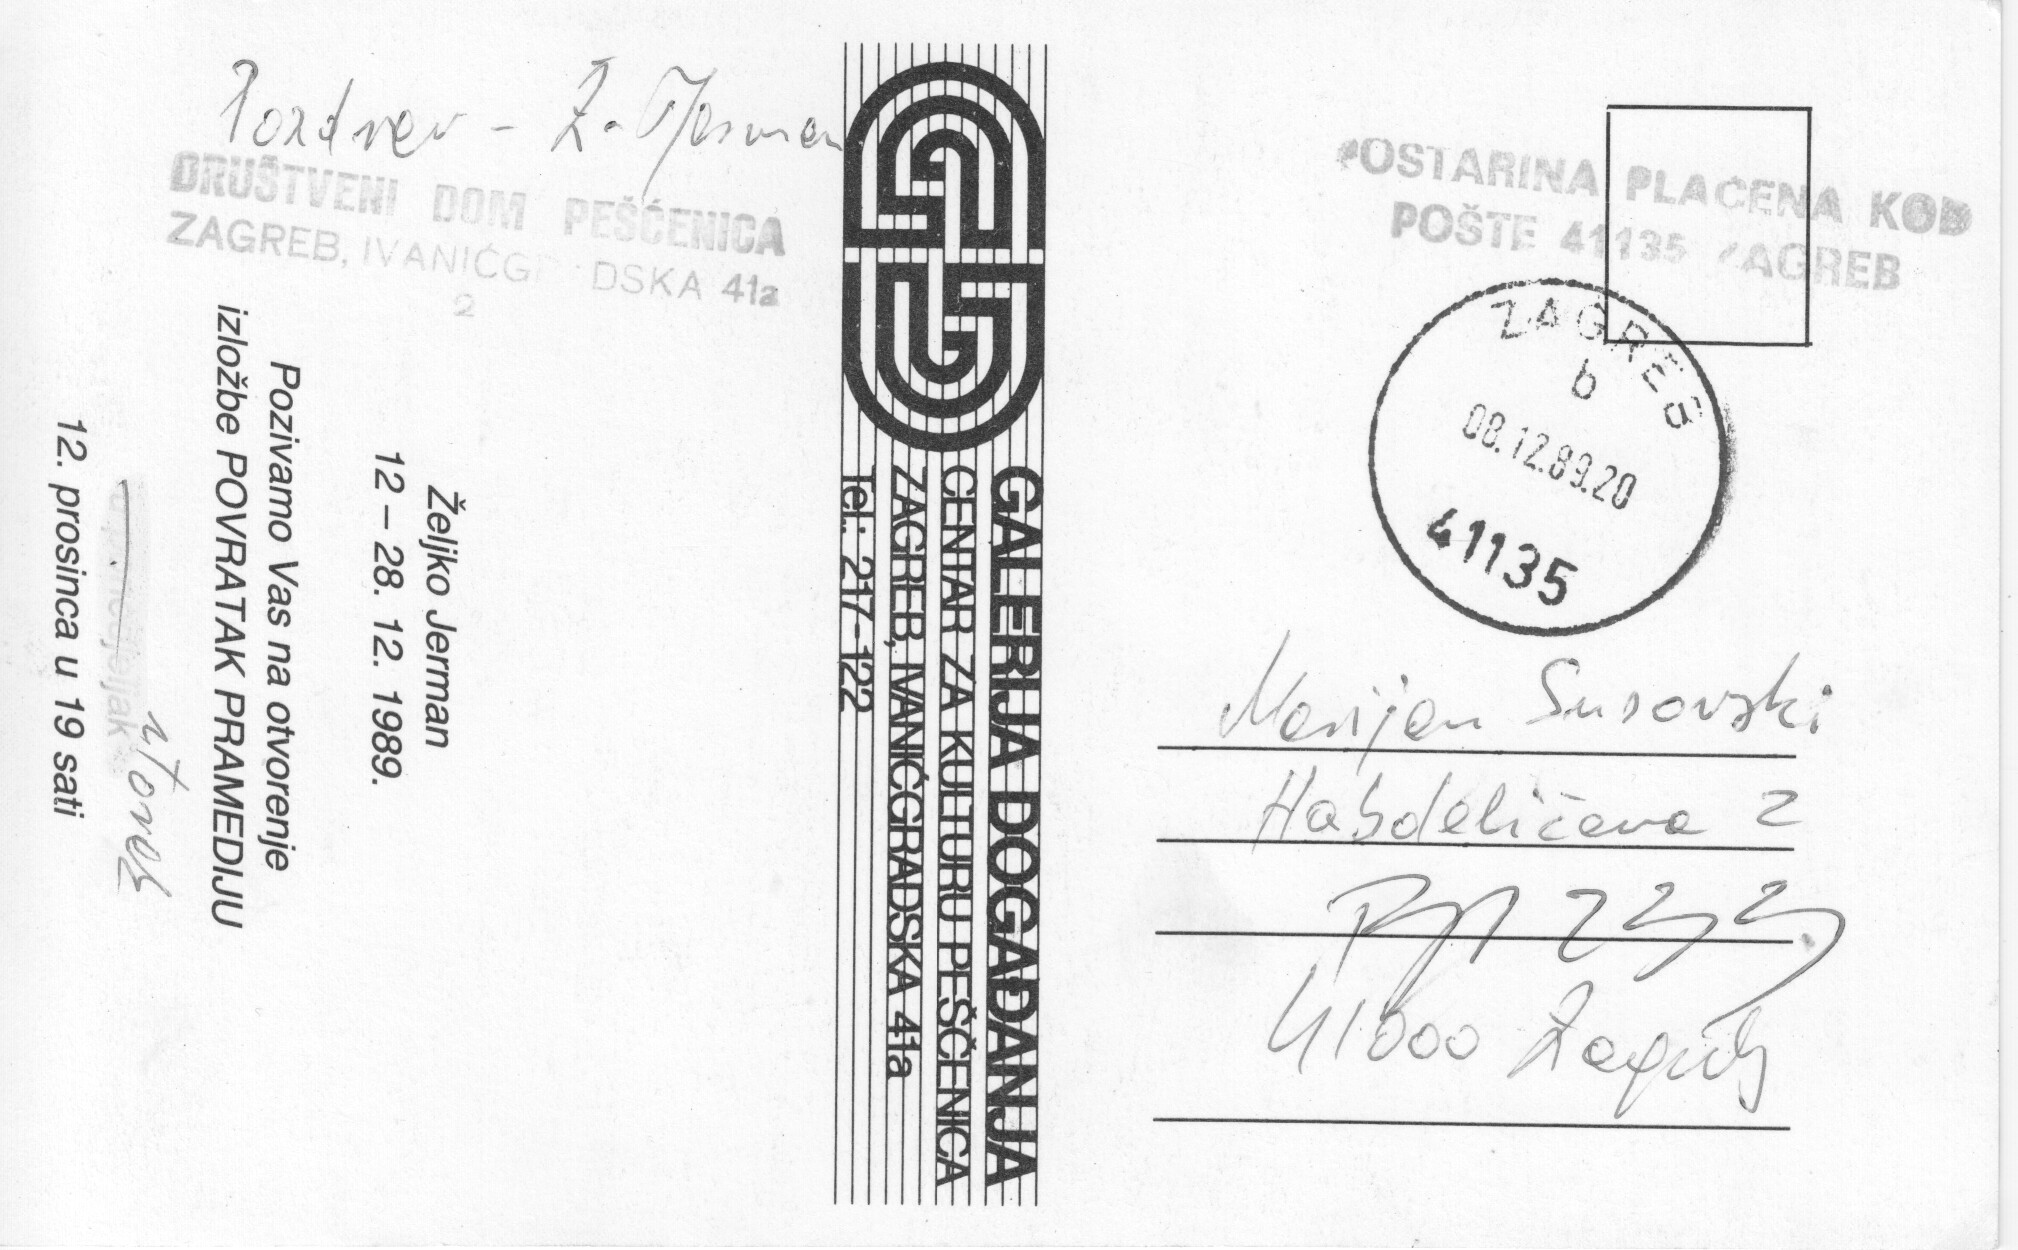 Pozdrav - Ž. Jerman
DRUŠTVENI DOM PEŠĆENICA
ZAGREB, IVANIĆGR DSKA 41a
2
Željko Jerman
12 – 28. 12. 1989.
Pozivamo Vas na otvorenje
izložbe POVRATAK PRAMEDIJU
utorak
12. prosinca u 19 sati
GALERIJA DOGAĐANJA
CENTAR ZA KULTURU PEŠČENICA
ZAGREB, IVANIĆGRADSKA 41a
Tel.: 217-122
POSTARINA PLAĆENA KOD
POŠTE 41135 ZAGREB
ZAGREB
b
08.12.89.20
41135
Marijan Susovski
Habdelićeva 2
41000 Zagreb